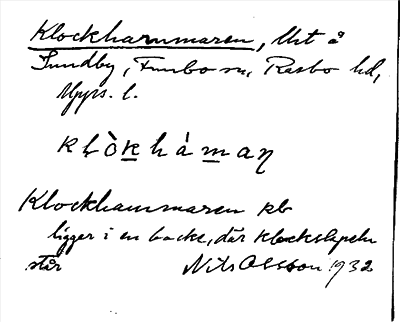 Klockhammaren, Ur å
Sundby, Funbo sn, Rasbo hd,
Upps. l.
kḷòk háman
Klockhammaren kb
ligger i en backe, där klockstapeln
står Nils Olsson 1932